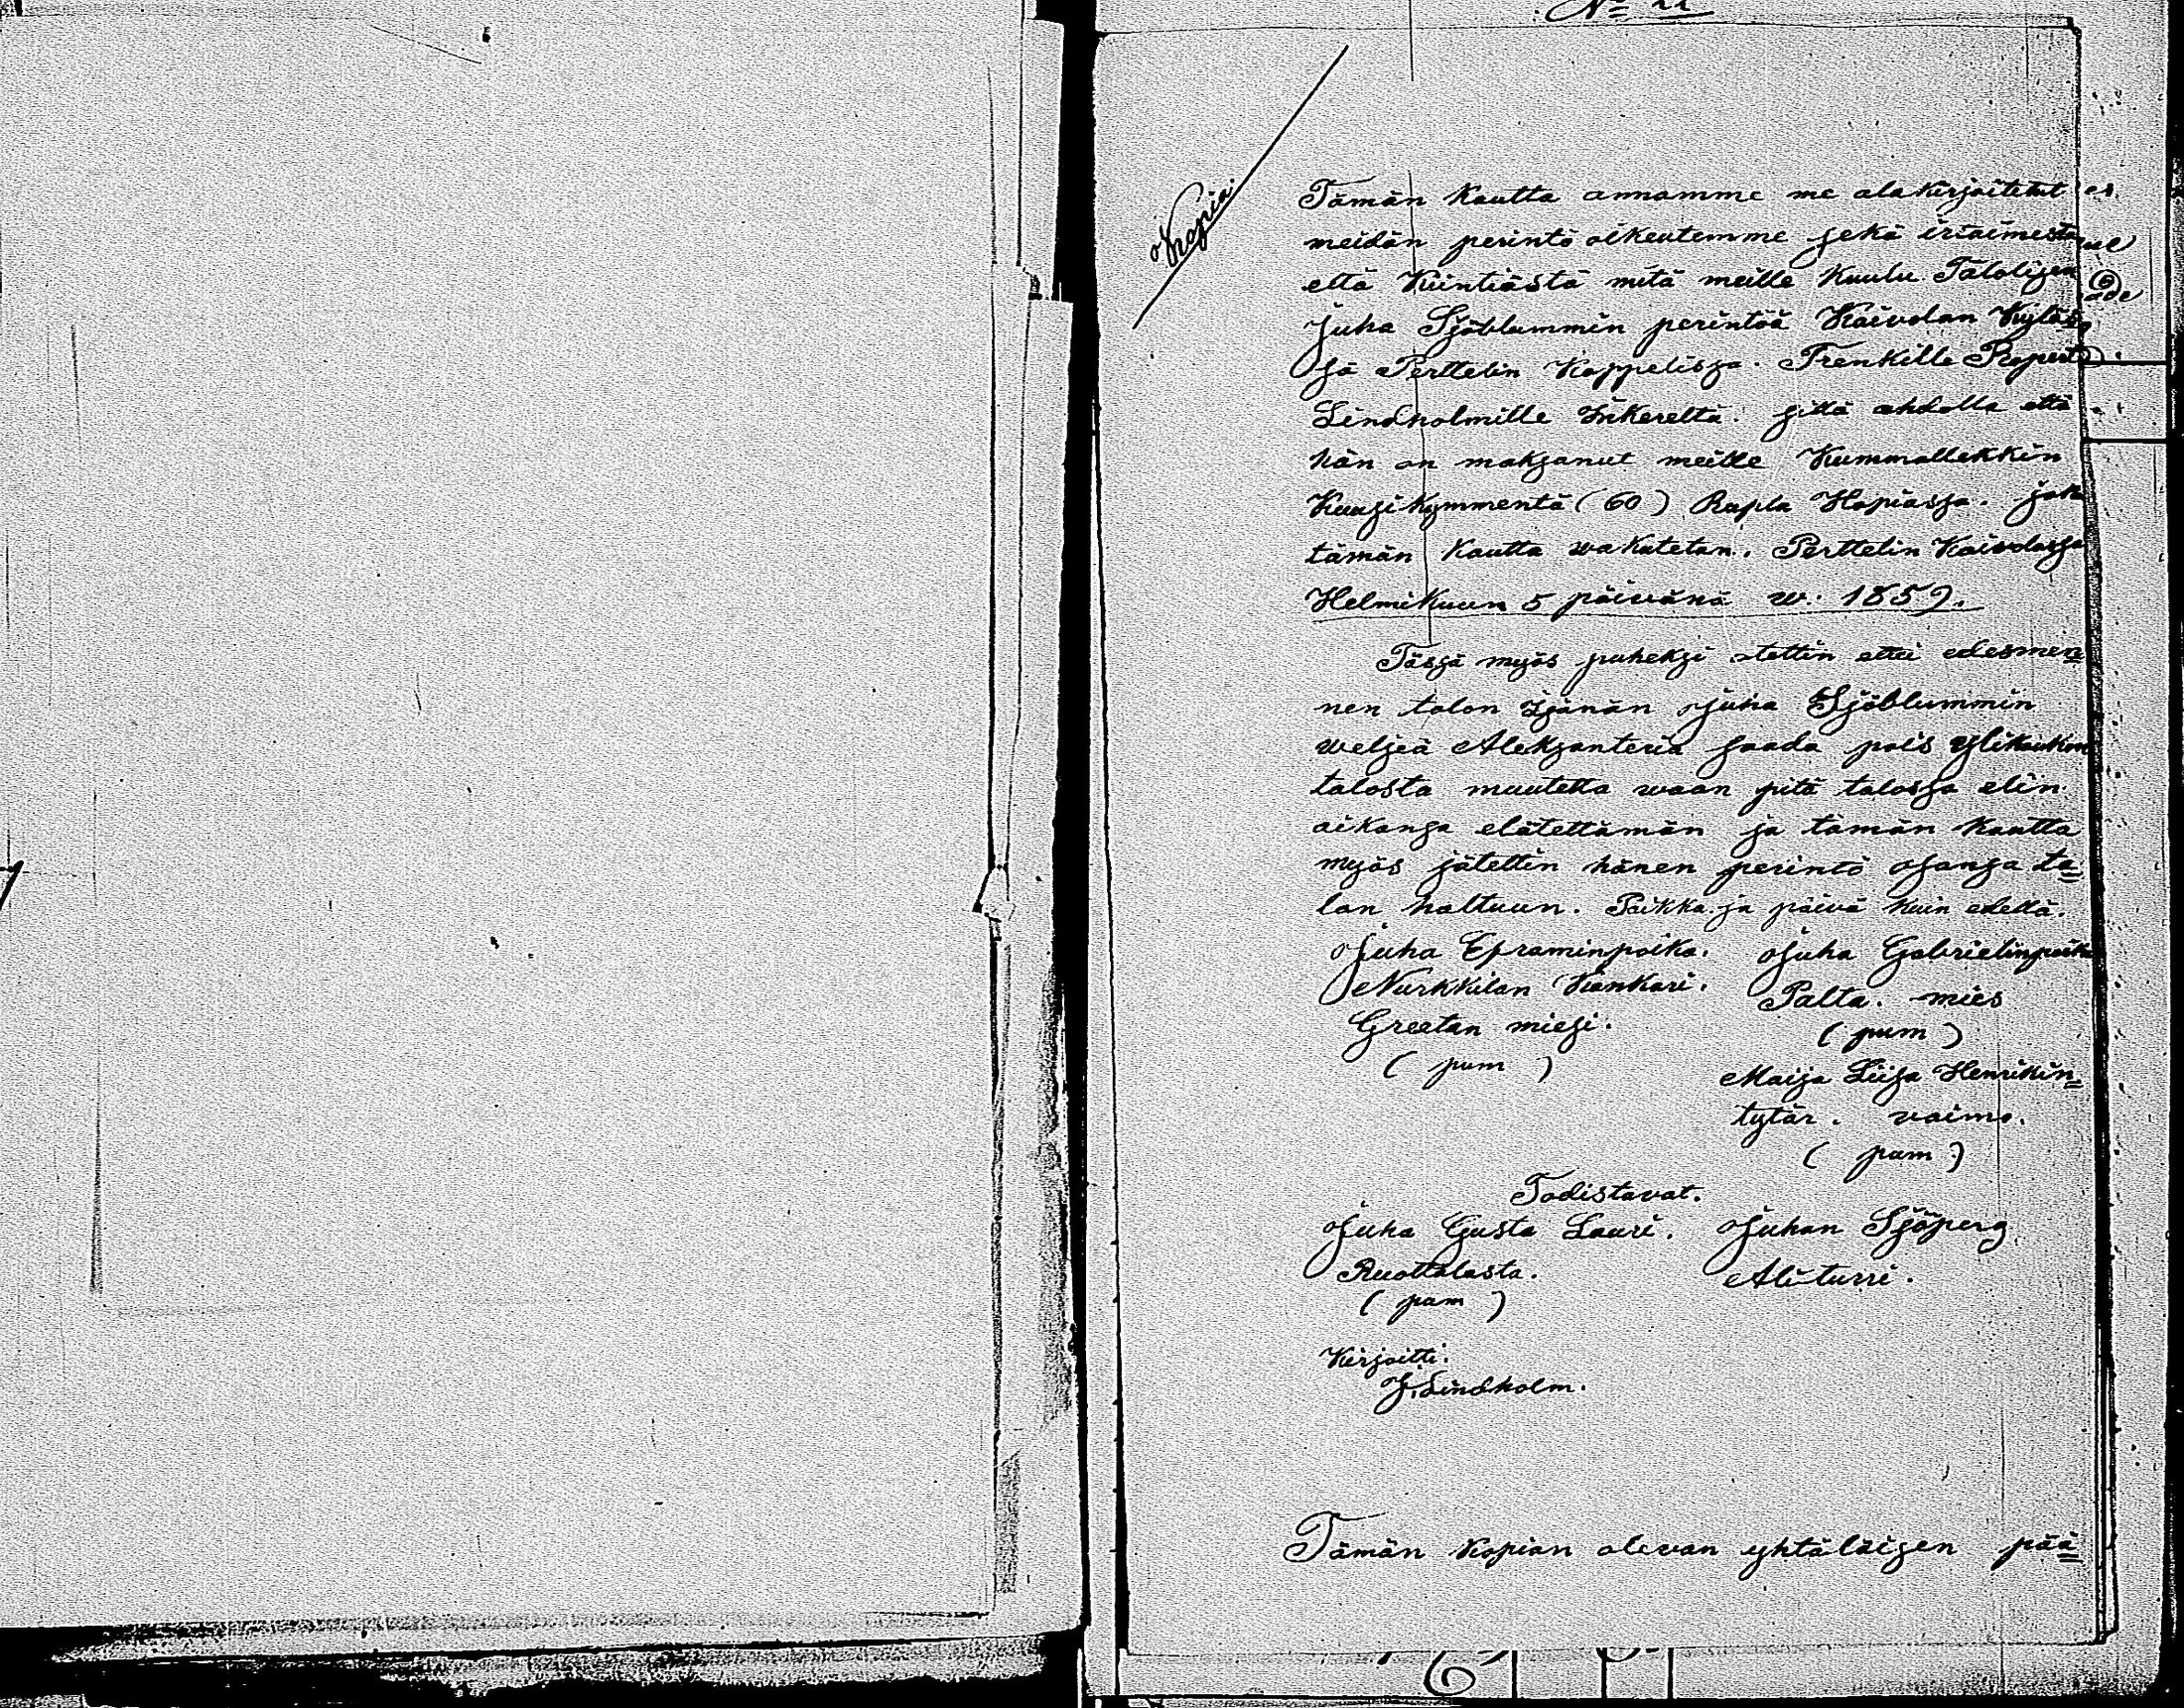 Kopia
Tämän Kautta annamme me alakirjoitetut
meidän perintö oikeutemme sekä irtaimesta
että Kiintiästä mitä meille Kuulu Talolisen
Juha Sjöblummin perintöä Kaivolan Kylas
sä Perttelin Kappelissa. Trenkille Ropert
Lindholmille Inkereltä. sillä ehdolla että
hän on maksanut meille Kummallekkin
Kuusi Kymmentä (60) Rupla Hopiassa. jok
tämän Kautta wakutetan. Perttelin Kaivolassa
Helmikuun 5 päivänä w. 1859.
Tässä myös puheksi otettin ettei edesmen=
nen talon Isänän Juha Sjöblummin
weljeä Aleksanteria saada pois Ylikaukon
talosta muutetta waan pitä talossa elin
aikansa elätettämän ja tämän Kautta
myös jätettin hänen perintö osansa ta=
lon haltuun. Paikka ja päivä Kuin edellä.
Juha Epraminpoika. Juha Gabrielinpoika
Nurkkilan Kankari. Palta. mies
Greetan miesi. (pum)
( pum )
Maija Liisa Henrikin=
tytär. vaimo.
( pum )
Todistavat.
Juha Gusta Lauri. Juhan Sjöperg
Ruottalasta. Ali-turri.
( pum )
Kirjoitti.
J. Lindholm.
Tämän Kopian olevan yhtäläisen pää=